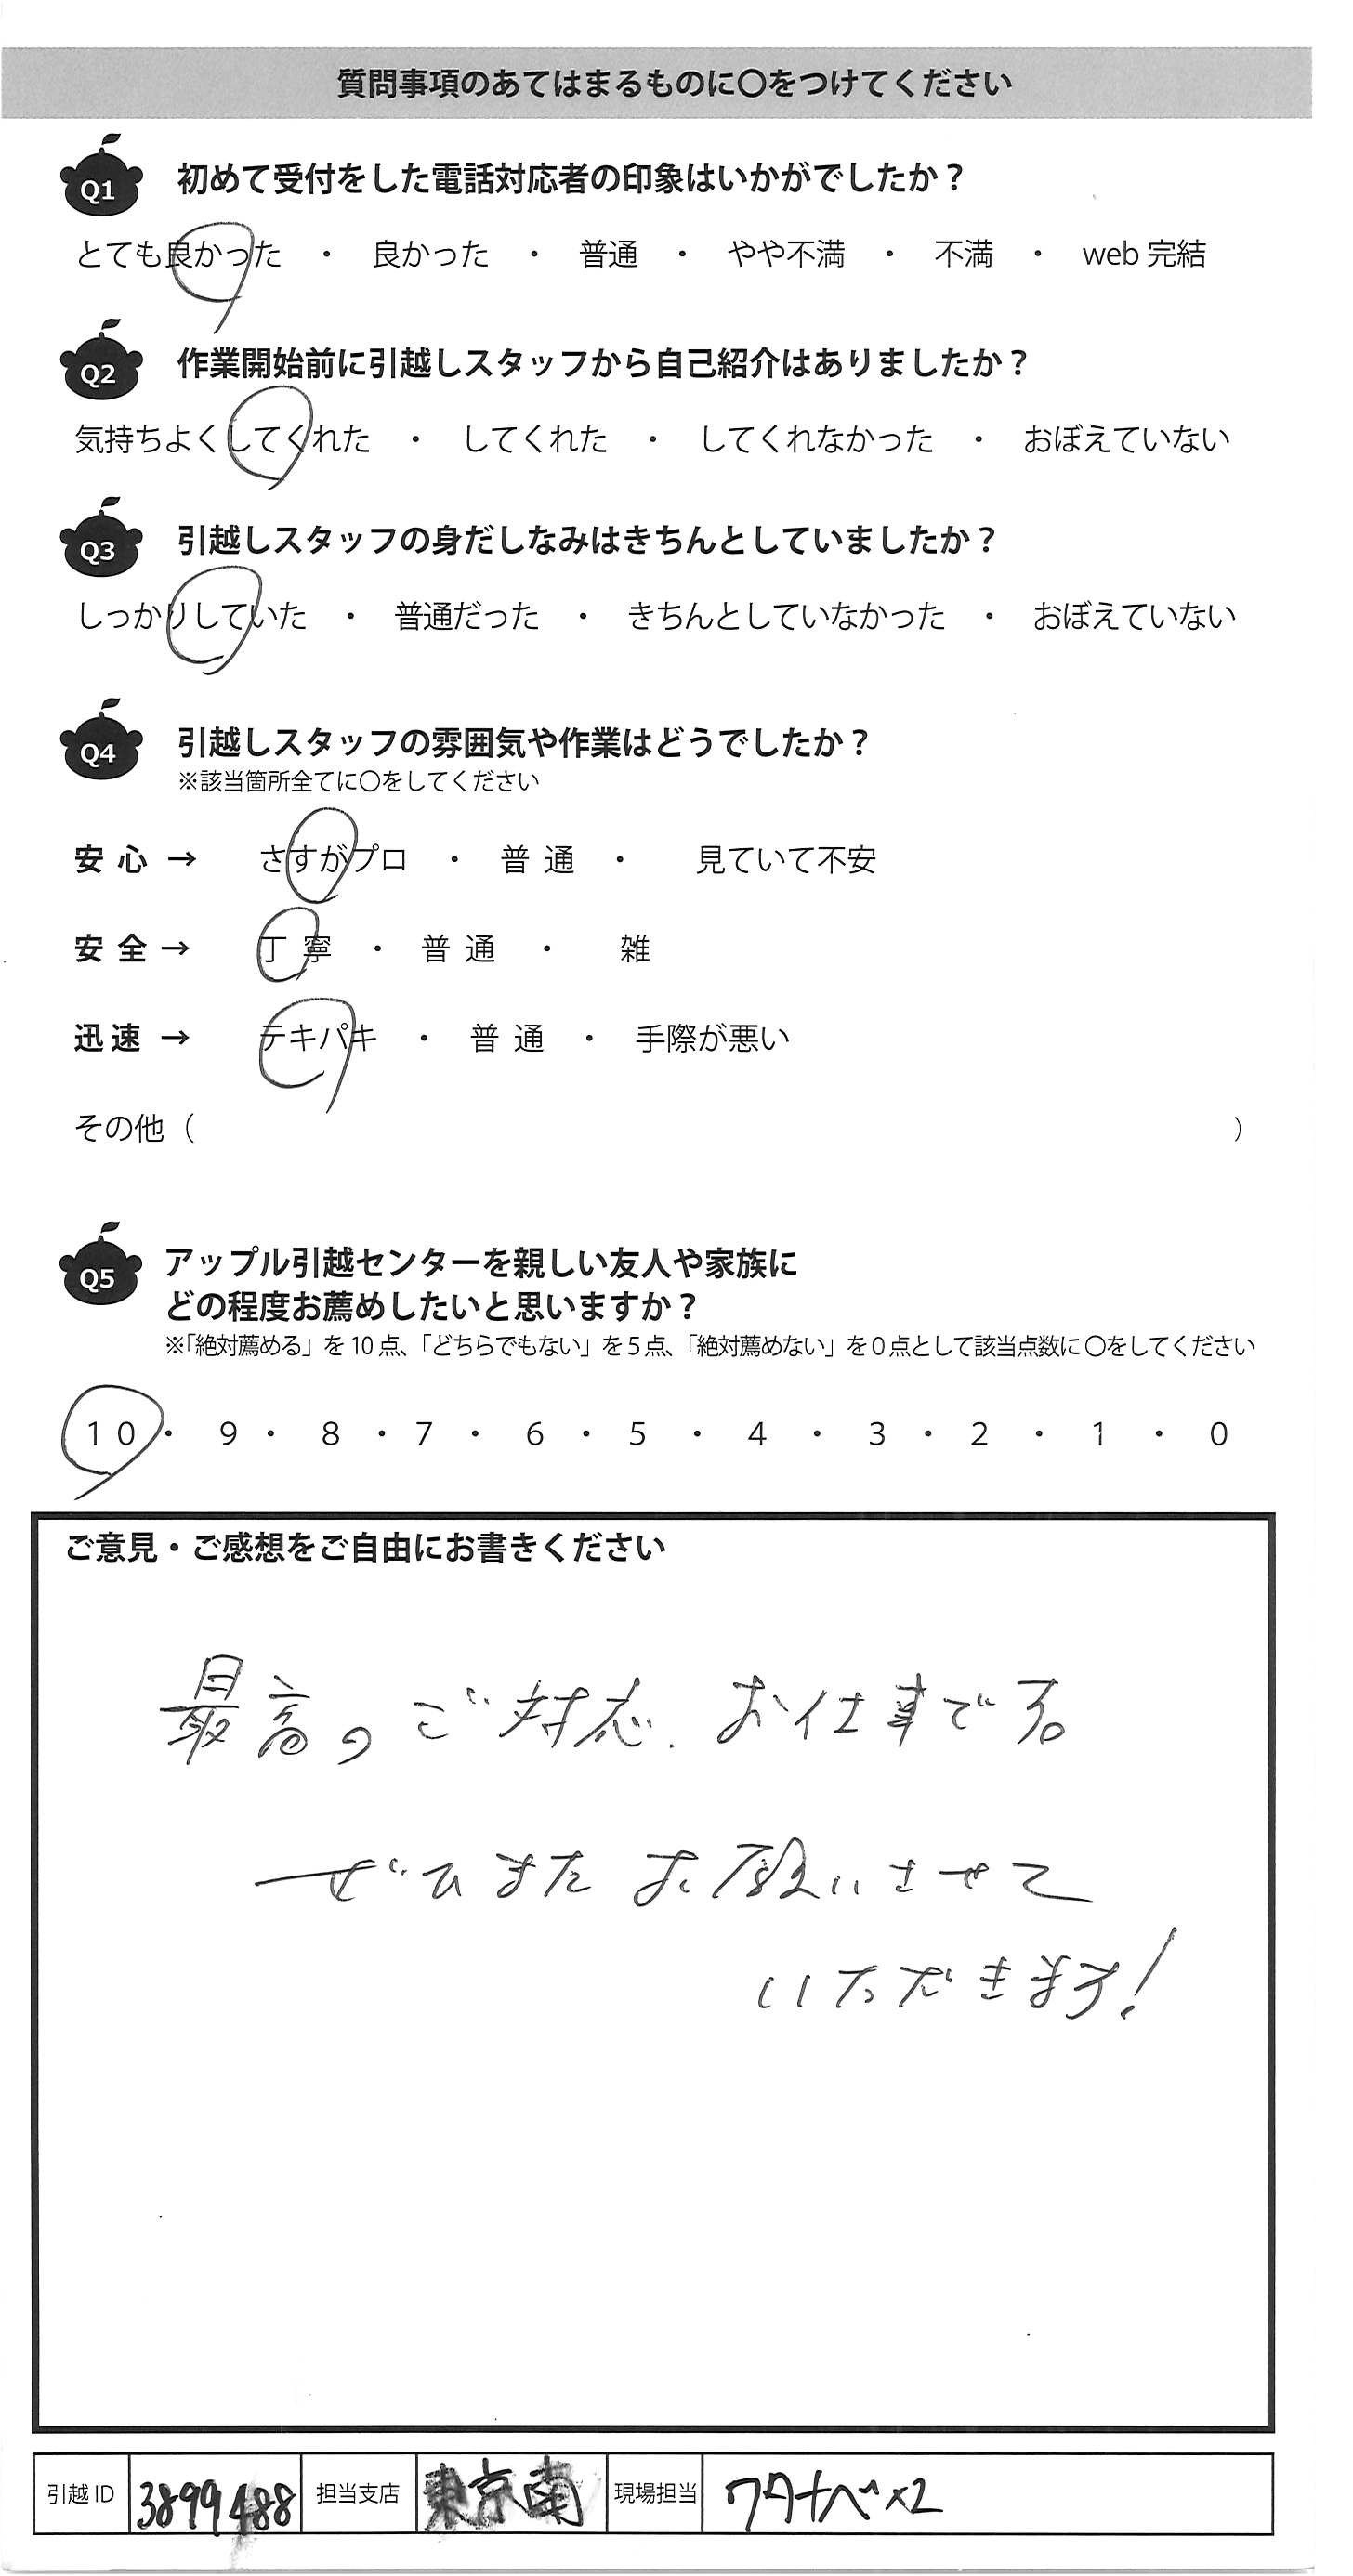 質問事項のあてはまるものに〇をつけてください
Q1 初めて受付をした電話対応者の印象はいかがでしたか？
とても良かった ・ 良かった ・ 普通 ・ やや不満 ・ 不満 ・ web 完結
Q2 作業開始前に引越しスタッフから自己紹介はありましたか？
気持ちよくしてくれた ・ してくれた ・ してくれなかった ・ おぼえていない
Q3 引越しスタッフの身だしなみはきちんとしていましたか？
しっかりしていた ・ 普通だった ・ きちんとしていなかった ・ おぼえていない
Q4 引越しスタッフの雰囲気や作業はどうでしたか？
※該当箇所全てに〇をしてください
安心 → さすがプロ ・ 普通 ・ 見ていて不安
安全 → 丁寧 ・ 普通 ・ 雑
迅速 → テキパキ ・ 普通 ・ 手際が悪い
その他（ ）
Q5 アップル引越センターを親しい友人や家族に
どの程度お薦めしたいと思いますか？
※「絶対薦める」を10点、「どちらでもない」を5点、「絶対薦めない」を0点として該当点数に〇をしてください
10 ・ 9 ・ 8 ・ 7 ・ 6 ・ 5 ・ 4 ・ 3 ・ 2 ・ 1 ・ 0
ご意見・ご感想をご自由にお書きください
最高のご対応、お仕事です。
ぜひまたお願いさせて
いただきます！
引越ID 3899488 担当支店 東京南 現場担当 ワタナベ×2